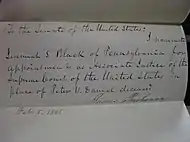 To the Senate of the United States:
I nominate
Jeremiah S. Black of Pennsylvania for
appointment as Associate Justice of the
Supreme Court of the United States in
place of Peter V. Daniel deceased
James Buchanan
Feb. 5. 1861